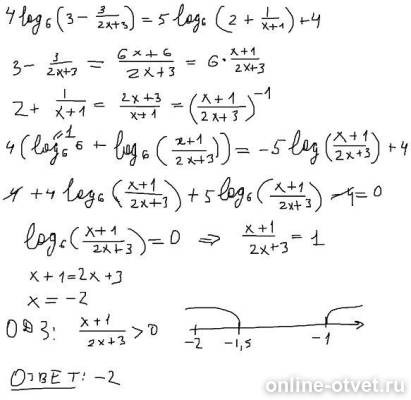 4 log₆(3 - 3/(2x+3)) = 5 log₆(2 + 1/(x+1)) + 4
3 - 3/(2x+3) = (6x+6)/(2x+3) = 6 · (x+1)/(2x+3)
2 + 1/(x+1) = (2x+3)/(x+1) = ((x+1)/(2x+3))⁻¹
4(log₆ 6 + log₆((x+1)/(2x+3))) = -5 log((x+1)/(2x+3)) + 4
4 + 4 log₆((x+1)/(2x+3)) + 5 log₆((x+1)/(2x+3)) - 4 = 0
log₆((x+1)/(2x+3)) = 0 ⇒ (x+1)/(2x+3) = 1
x+1 = 2x+3
x = -2
ОДЗ: (x+1)/(2x+3) > 0 -2 -1,5 -1
ОТВЕТ: -2
online-otvet.ru